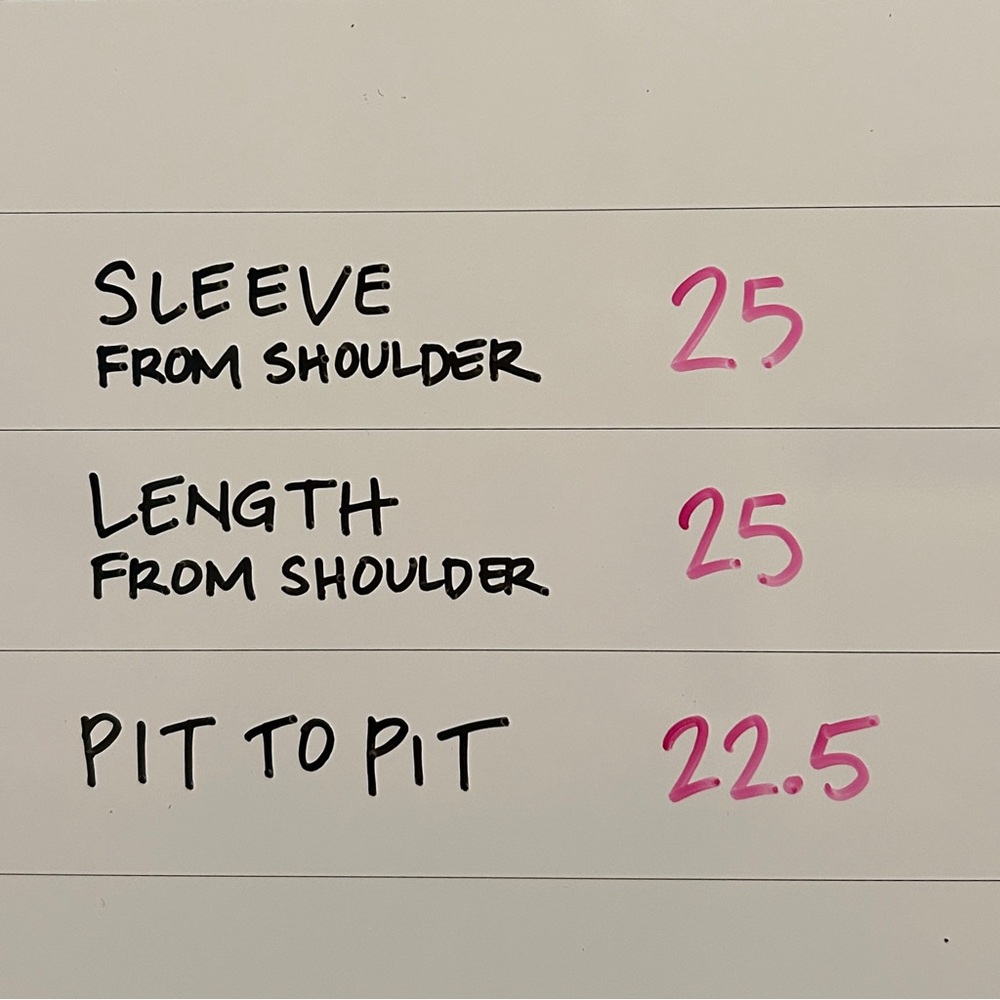 SLEEVE 25
FROM SHOULDER
LENGTH 25
FROM SHOULDER
PIT TO PIT 22.5